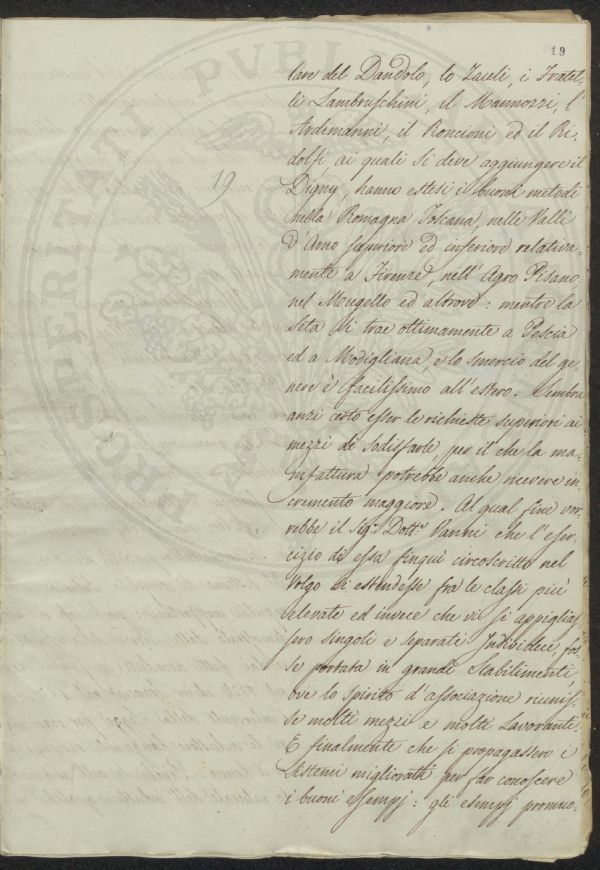 19
19
lare del Dandolo, lo Zauli, i Fratel-
li Lambruschini, il Mannozzi, l'
Ardimanni, il Roncioni ed il Ri-
dolfi ai quali si deve aggiungere il
Digny, hanno estesi i buoni metodi
nella Romagna Toscana, nelle Valli
d'Arno superiore ed inferiore relativa-
mente a Firenze, nell'Agro Pisano,
nel Mugello ed altrove: mentre la
Seta si trae ottimamente a Pescia
ed a Modigliana, e lo smercio del ge-
nere è facilissimo all'estero. Sembra
anzi certo esser le richieste superiori ai
mezzi di sodisfarle, per il che la ma-
nifattura potrebbe anche ricevere in-
cremento maggiore. Al qual fine vor-
rebbe il Sig.r Dott.r Vanni che l'eser-
cizio di essa finquì circoscritto nel
Volgo si estendesse fra le classi più
elevate ed invece che vi si appiglias-
sero singoli e separati Individui, fos-
se portata in grandi Stabilimenti,
ove lo spirito d'associazione riunis-
se molti mezzi e molti Lavoranti.
E finalmente che si propagassero i
Sistemi migliorati per far conoscere
i buoni essempj: gli esempj promuo-
PROSPERITATI PVBLIC